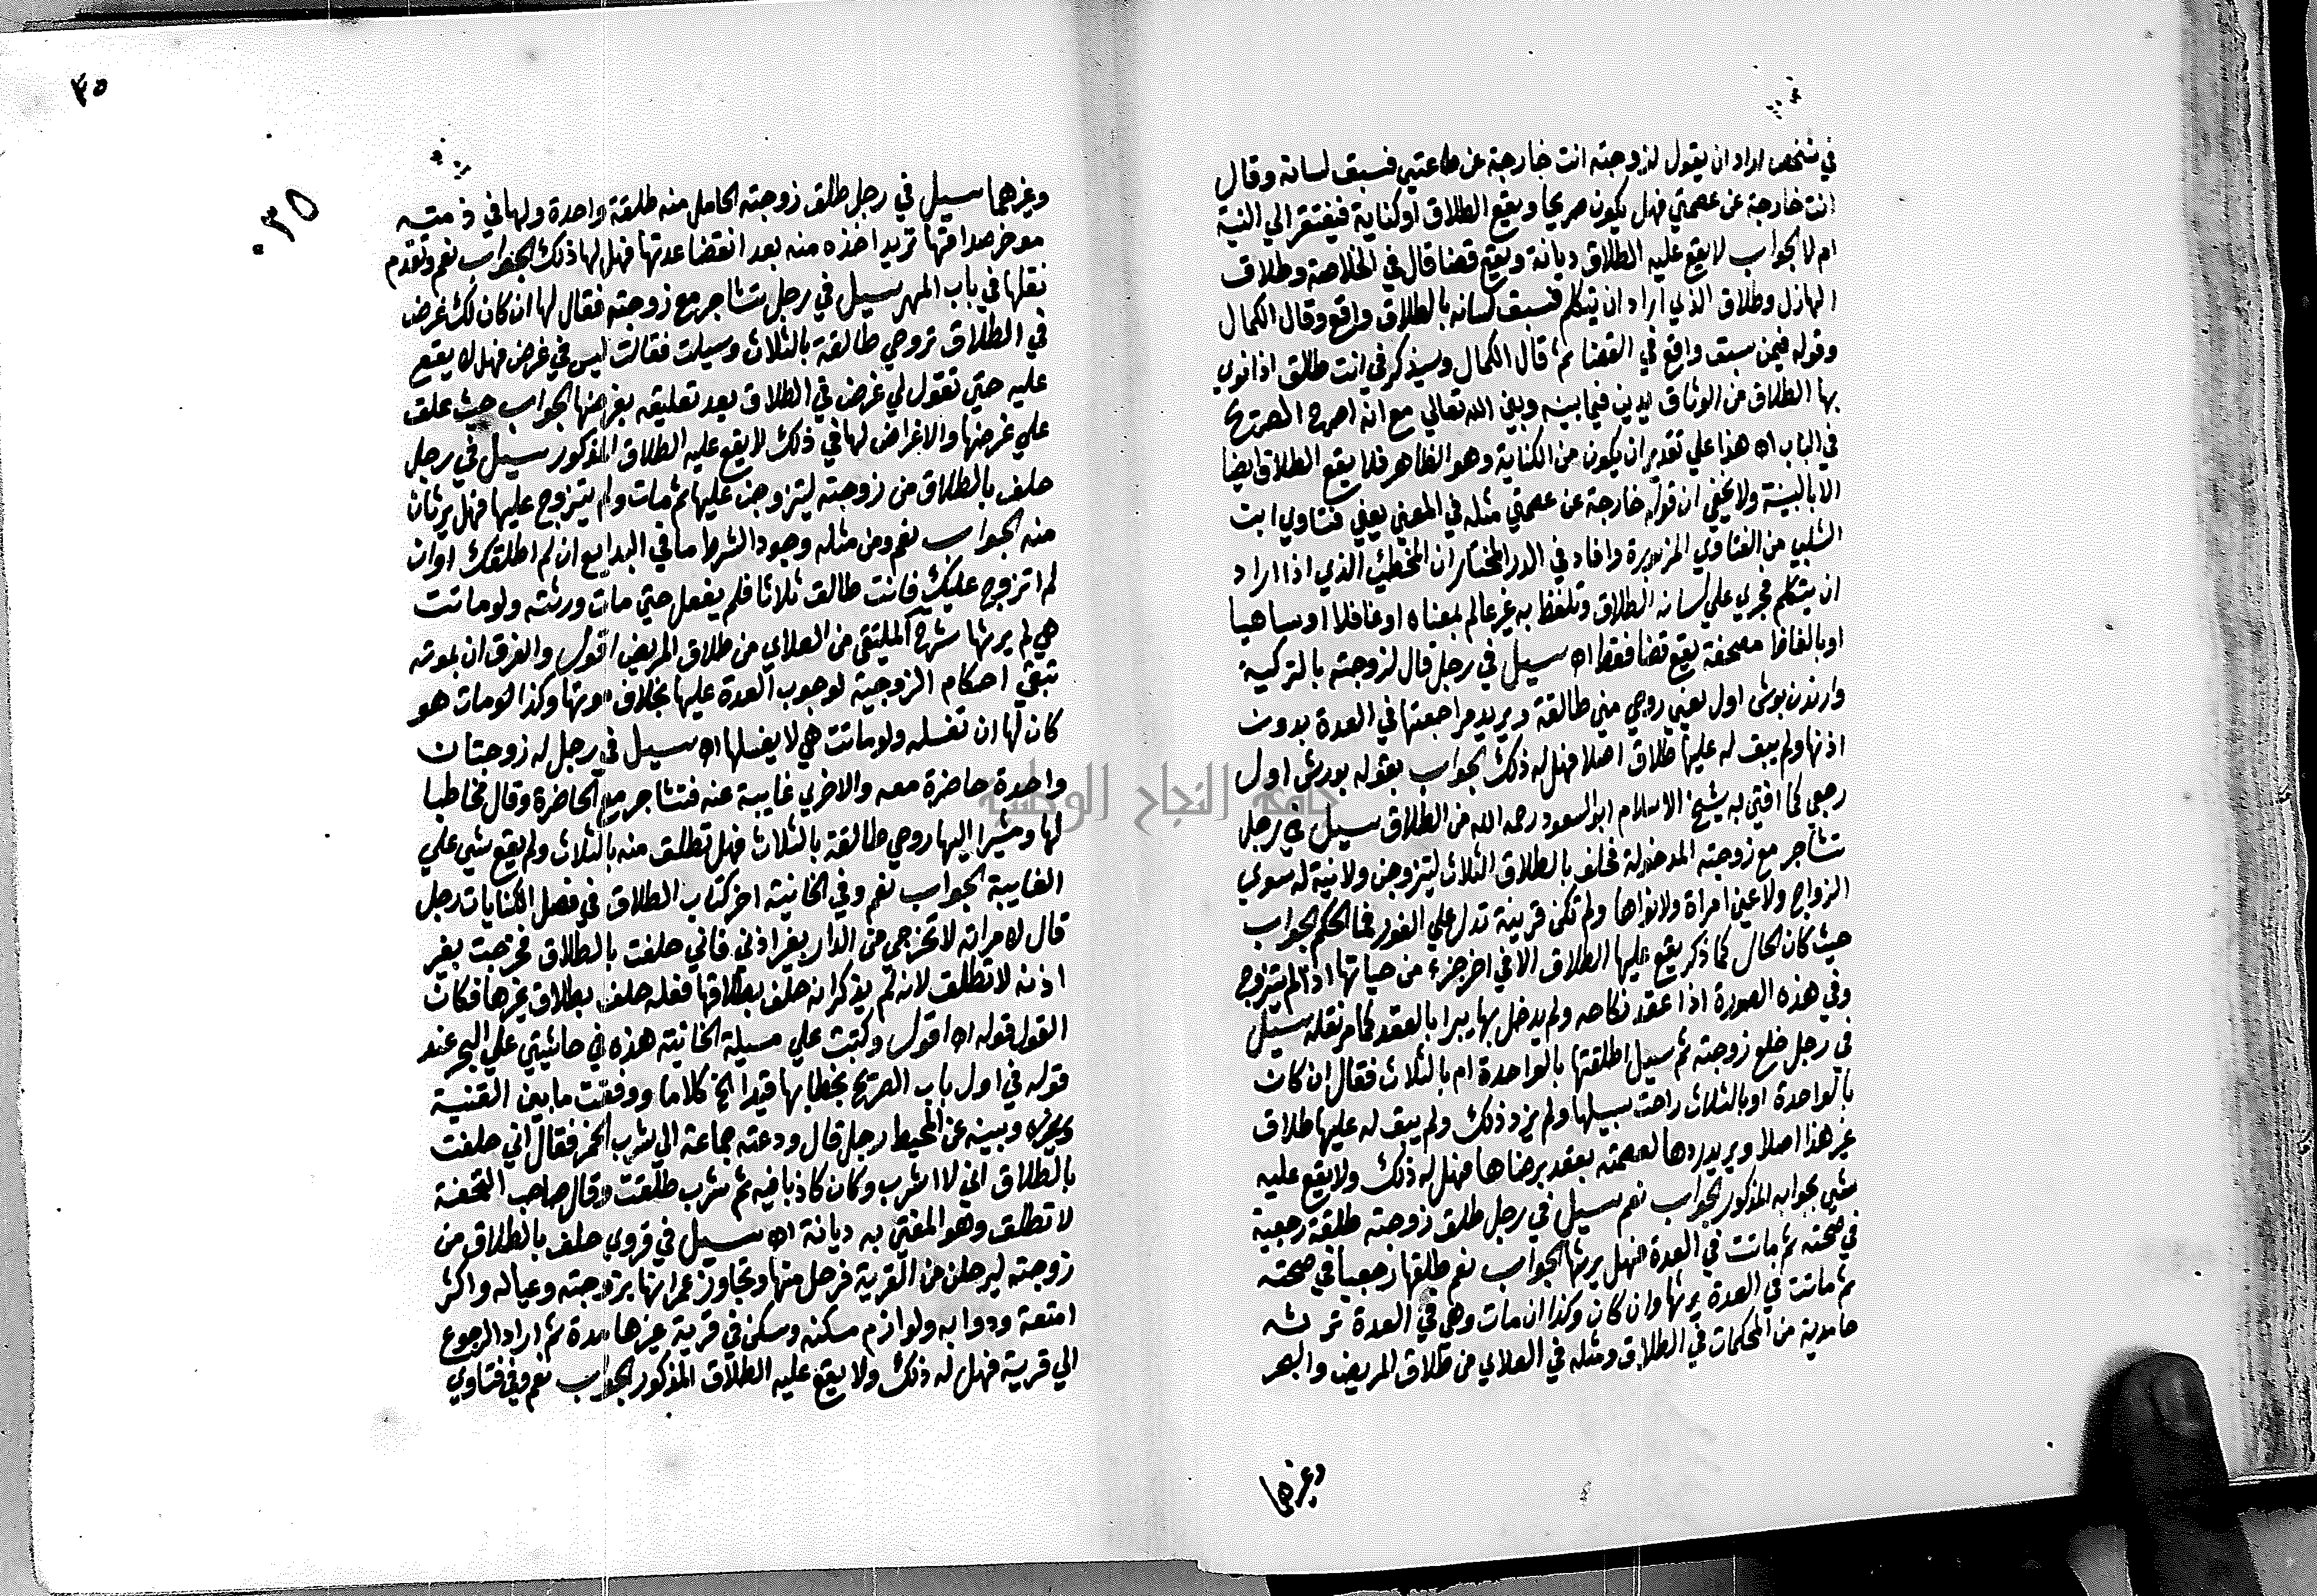 في شخص اراد ان يقول لزوجته انت خارجة عن طاعتي فسبق لسانه وقال
انت خارجة عن عصمتي فهل يكون صريحا ويقع الطلاق او كناية فيفتقر الي النية
ام لا الجواب لا يقع عليه الطلاق ديانة ويقع قضا قال في الخلاصة وطلاق
الهازل وطلاق الذي اراد ان يتكلم فسبق لسانه بالطلاق واقع وقال الكمال
وقوله فيمن سبق واقع في القضا ثم قال الكمال وسيذكر في انت طالق اذا نوي
بها الطلاق من الوثاق يدين فيما بينه وبين الله تعالي مع انه اصرح الصريح
في الباب اه هذا علي تقدير ان يكون من الكناية وهو الظاهر فلا يقع الطلاق ايضا
الا بالنية ولا يخفي ان قوله خارجة عن عصمتي مثله في المعني يعني فتاوي ابن
الشلبي من الفتاوي المزبورة وافاد في الدر المختار ان المخطئ الذي اذا اراد
ان يتكلم فجري علي لسانه الطلاق وتلفظ به غير عالم بمعناه او غافلا او ساهيا
او بالفاظ مصحفة يقع قضا فقط اه سيل في رجل قال لزوجته بالتركية
وارندن بوش اول يعني روحي مني طالقة ويريد مراجعتها في العدة بدون
اذنها ولم يبق له عليها طلاق اصلا فهل له ذلك الجواب بقوله بورش اول
رجعي كما افتي به شيخ الاسلام ابو السعود رحمه الله من الطلاق سيل في رجل
تشاجر مع زوجته المدخولة فحلف بالطلاق الثلاث ليتزوجن ولا نية له سوي
الزواج ولا عين امراة ولا نواها ولم تكن قرينة تدل علي الفور فما الحكم الجواب
حيث كان الحال كما ذكر يقع عليها الطلاق الا في اخر جزء من حياتها اذا لم يتزوج
وفي هذه الصورة اذا عقد نكاحه ولم يدخل بها يبرا بالعقد كما مر نقله سيل
في رجل خلع زوجته ثم سيل اطلقتها بالواحدة ام بالثلاث فقال ان كان
بالواحدة او بالثلاث راحت سبيلها ولم يزد ذلك ولم يبق له عليها طلاق
غير هذا اصلا ويريد ردها لعصمته بعقد برضاها فهل له ذلك ولا يقع عليه
شي بجوابه المذكور الجواب نعم سيل في رجل طلق زوجته طلقة رجعية
في صحته ثم ماتت في العدة فهل يرثها الجواب نعم طلقها رجعيا في صحته
ثم ماتت في العدة يرثها وان كان وكذا ان مات وهي في العدة ترثه
حامدية من المحكمات في الطلاق ومثله في العلاي من طلاق المريض والبحر
وغيرهما
٣٥
٣٥
وغيرهما سيل في رجل طلق زوجته الحامل منه طلقة واحدة ولها في ذمته
موخر صداقها تريد اخذه منه بعد انقضا عدتها فهل لها ذلك الجواب نعم وتقدم
نقلها في باب المهر سيل في رجل تشاجر مع زوجته فقال لها ان كان لك غرض
في الطلاق تروحي طالقة بالثلاث وسيلت فقالت ليس في غرض فهل لا يقع
عليه حتي تقول لي غرض في الطلاق بعد تعليقه بغرضها الجواب حيث علق
علي غرضها والا غراض لها في ذلك لا يقع عليه الطلاق المذكور سيل في رجل
حلف بالطلاق من زوجته ليتزوجن عليها ثم مات ولم يتزوج عليها فهل يرثان
منه الجواب نعم ومن مثله وجود الشرط ما في البدايع ان لم اطلقك او ان
لم اتزوج عليك فانت طالق ثلاثا فلم يفعل حتي مات ورثته ولو ماتت
هي لم يرثها شرح الملتقي من العلاي من طلاق المريض اقول والفرق ان بموته
تبقي احكام الزوجية لوجوب العدة عليها بخلاف موتها وكذا لو مات هو
كان لها ان تغسله ولو ماتت هي لا يغسلها اه سيل في رجل له زوجتان
واحدة حاضرة معه والاخري غايبة عنه فتشاجر مع الحاضرة وقال مخاطبا
لها ومشيرا اليها روحي طالقة بالثلاث فهل تطلق منه بالثلاث ولم يقع شي علي
الغايبة الجواب نعم وفي الخانية اخر كتاب الطلاق في فصل الكنايات رجل
قال لامراته لا تخرجي من الدار بغير اذني فاني حلفت بالطلاق فخرجت بغير
اذنه لا تطلق لانه لم يذكر انه حلف بطلاقها فلعله حلف بطلاق غيرها فكان
القول قوله اه اقول وكتبت علي مسيلة الخانية هذه في حاشيتي علي البحر عند
قوله في اول باب الصريح بخطابها قيدا الخ كلاما ووفقت ما بين القنية
وغيره وبينه عن المحيط رجل قال ودعته جماعة الي شرب الخمر فقال اني حلفت
بالطلاق اني لا اشرب وكان كاذبا فيه ثم شرب طلقت وقال صاحب التحفة
لا تطلق وهو المفتي به ديانة اه سيل في قروي حلف بالطلاق من
زوجته ليرحلن من القرية فرحل منها وتجاوز عمرانها بزوجته وعياله واكثر
امتعة ودوابه ولوازم مسكنه وسكن في قرية غيرها مدة ثم اراد الرجوع
الي قرية فهل له ذلك ولا يقع عليه الطلاق المذكور الجواب نعم وفي فتاوي
جامعة النجاح الوطنية